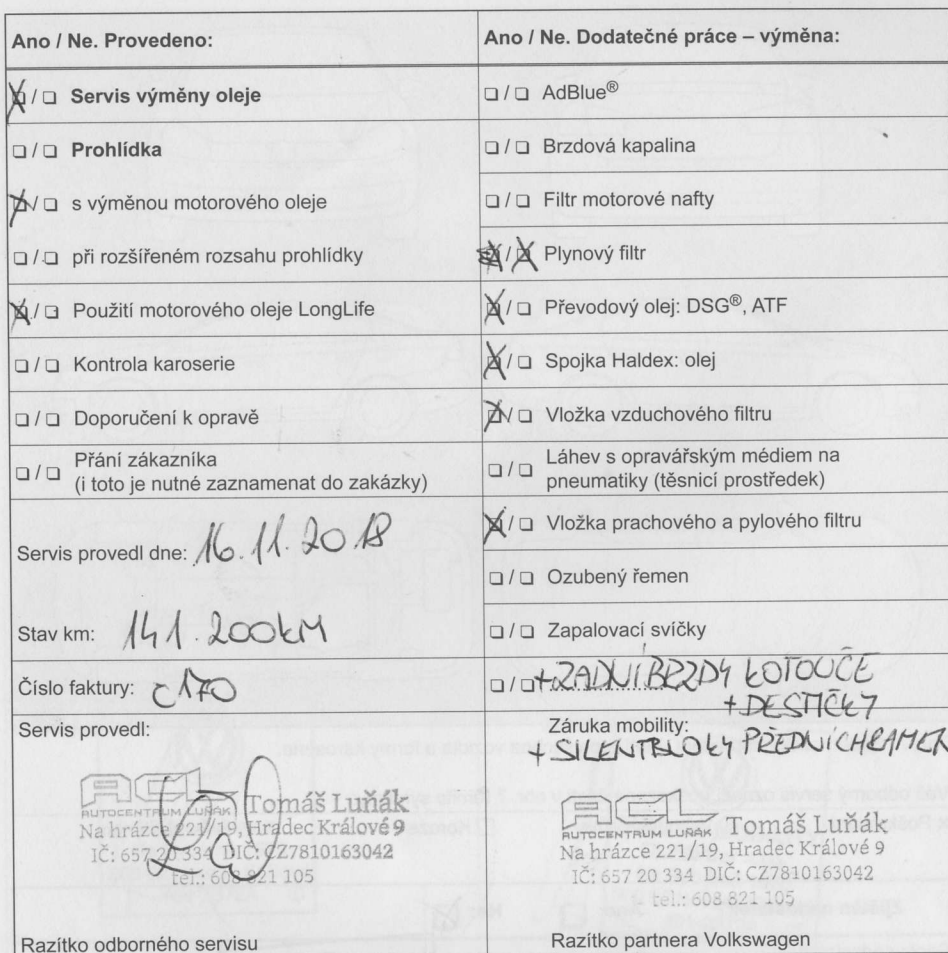 Ano / Ne. Provedeno:
☒ / ☐ Servis výměny oleje
☐ / ☐ Prohlídka
☒ / ☐ s výměnou motorového oleje
☐ / ☐ při rozšířeném rozsahu prohlídky
☒ / ☐ Použití motorového oleje LongLife
☐ / ☐ Kontrola karoserie
☐ / ☐ Doporučení k opravě
☐ / ☐ Přání zákazníka
(i toto je nutné zaznamenat do zakázky)
Servis provedl dne: 16.11.2018
Stav km: 141.200KM
Číslo faktury: C170
Servis provedl:
ACL
AUTOCENTRUM LUŇÁK Tomáš Luňák
Na hrázce 221/19, Hradec Králové 9
IČ: 657 20 334 DIČ: CZ7810163042
tel.: 608 821 105
Razítko odborného servisu
Ano / Ne. Dodatečné práce – výměna:
☐ / ☐ AdBlue®
☐ / ☐ Brzdová kapalina
☐ / ☐ Filtr motorové nafty
☒ / ☒ Plynový filtr
☒ / ☐ Převodový olej: DSG®, ATF
☒ / ☐ Spojka Haldex: olej
☒ / ☐ Vložka vzduchového filtru
☐ / ☐ Láhev s opravářským médiem na
pneumatiky (těsnicí prostředek)
☒ / ☐ Vložka prachového a pylového filtru
☐ / ☐ Ozubený řemen
☐ / ☐ Zapalovací svíčky
☐ / ☐ +ZADNÍ BRZDY KOTOUČE
+DESTIČKY
Záruka mobility:
+ SILENTBLOKY PŘEDNÍCH RAMEN
ACL
AUTOCENTRUM LUŇÁK Tomáš Luňák
Na hrázce 221/19, Hradec Králové 9
IČ: 657 20 334 DIČ: CZ7810163042
tel.: 608 821 105
Razítko partnera Volkswagen